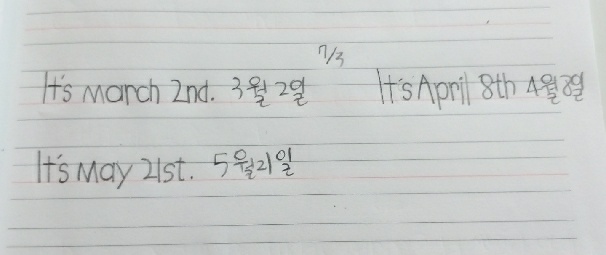 7/3
It's march 2nd. 3월 2일 It's April 8th 4월 8일
It's May 21st. 5월 21일